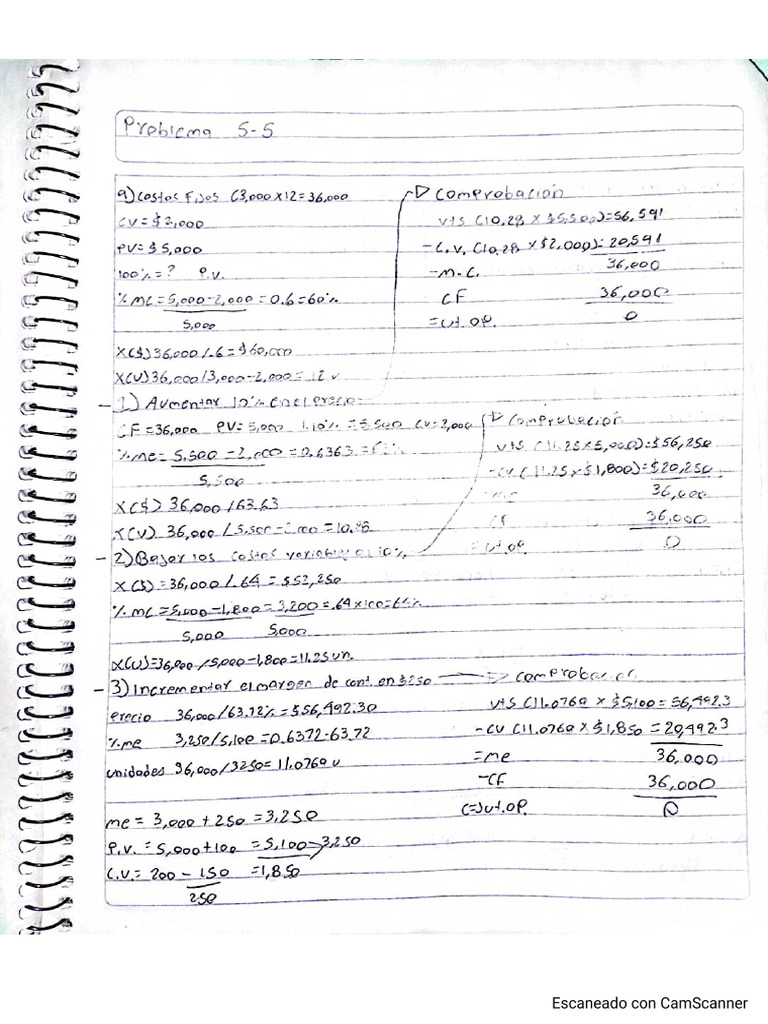 Problema 5-5
a) Costos Fijos (3,000 x 12 = 36,000
CV = $2,000
PV = $5,000
100% = ? P.V.
% MC = 5,000 - 2,000 = 0.6 = 60%
5,000
X($) 36,000 / .6 = $60,000
X(U) 36,000 / 3,000 - 2,000 = 12 u
→ Comprobación
vts (10.28 x $5,500) = 56,591
- C.V. (10.28 x $2,000) = 20,591
- M.C. 36,000
CF 36,000
= Ut. OP. 0
- 1) Aumentar 10% en el precio
CF = 36,000 PV = 5,000 1.10% = 5,500 CV = 2,000
% mc = 5,500 - 2,000 = 0.6363 =
5,500
X($) 36,000 / 63.63
X(U) 36,000 / 5,500 - 2,000 = 10.28
→ Comprobación
vts (11.25 x 5,000) = $56,250
- CV (11.25 x $1,800) = $20,250
mc 36,000
CF 36,000
= Ut. OP 0
- 2) Bajar los costos variables a 10%
X($) = 36,000 / .64 = $52,250
% mc = 5,000 - 1,800 = 3,200 = .64 x 100 = 64%
5,000 5,000
X(U) = 36,000 / 5,000 - 1,800 = 11.25 un.
- 3) Incrementar el margen de cont. en $250
→ Comprobación
precio 36,000 / 63.72% = $56,492.30
% mc 3,250 / 5,100 = 0.6372 - 63.72
unidades 36,000 / 3250 = 11.0769 u
vts (11.0769 x $5,100 = 56,492.3
- CV (11.0769 x $1,850 = 20,492.3
= mc 36,000
- CF 36,000
(=) Ut. OP. 0
mc = 3,000 + 250 = 3,250
P.V. = 5,000 + 100 = 5,100 > 3,250
C.V. = 200 - 150 = 1,850
250
Escaneado con CamScanner